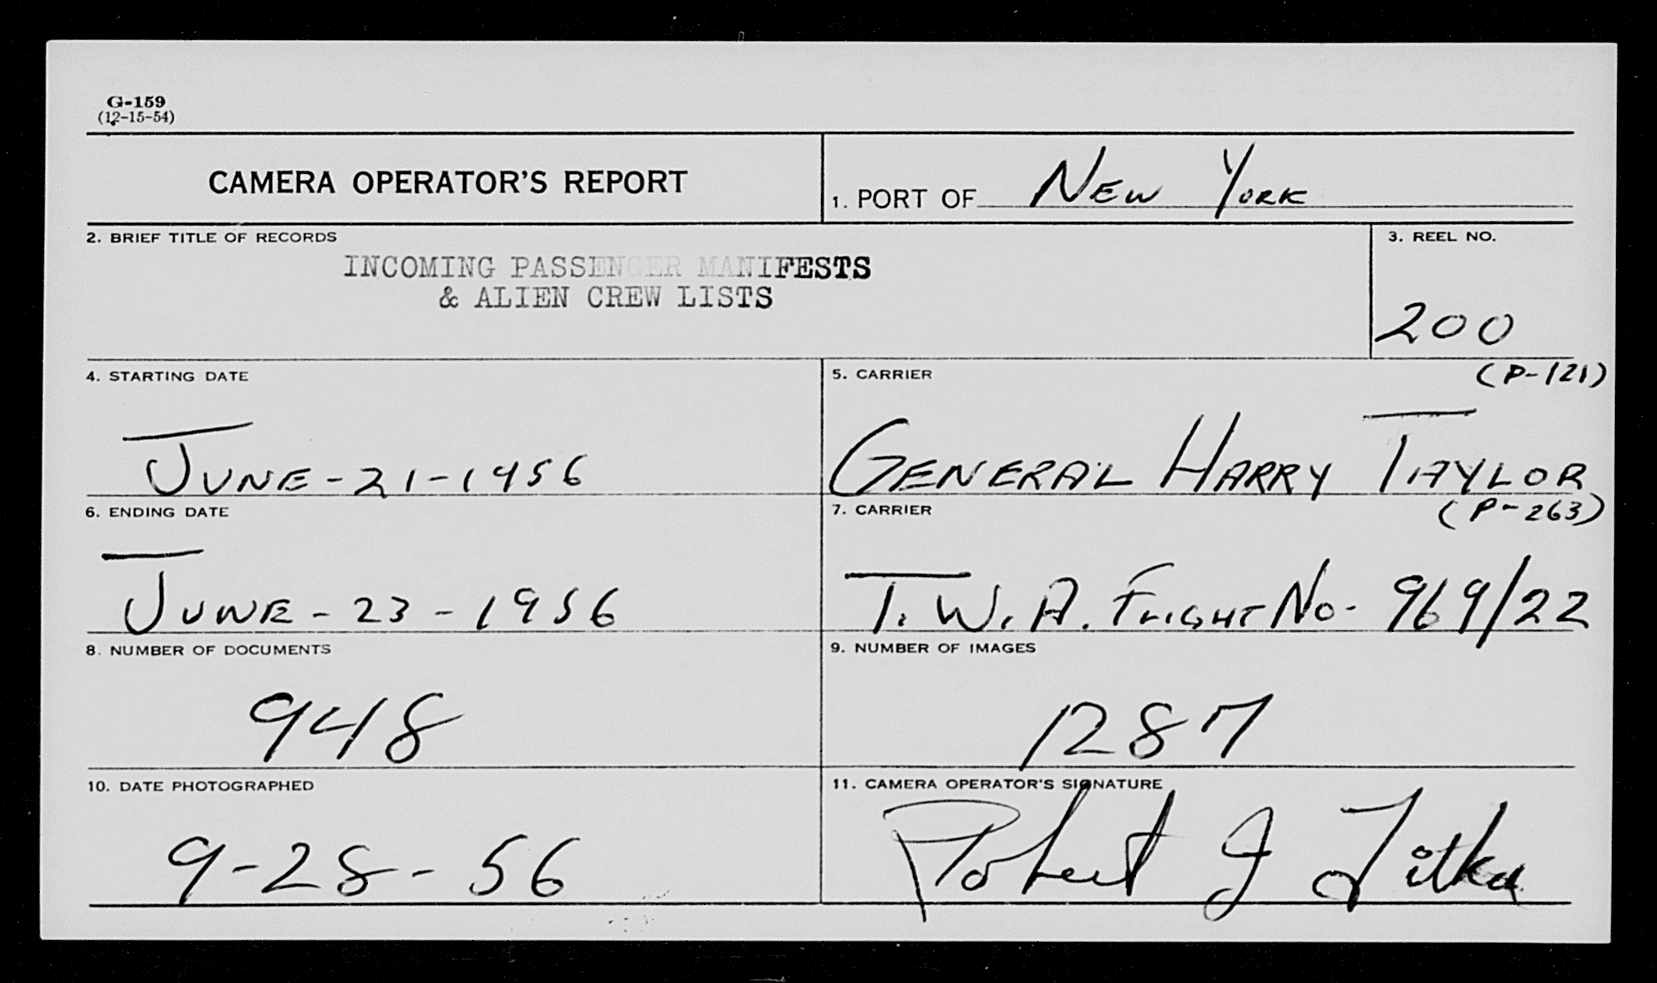 G-159
(12-15-54)
CAMERA OPERATOR'S REPORT
1. PORT OF New York
2. BRIEF TITLE OF RECORDS
INCOMING PASSENGER MANIFESTS
& ALIEN CREW LISTS
3. REEL NO.
200
4. STARTING DATE
June-21-1956
5. CARRIER
(P-121)
General Harry Taylor
6. ENDING DATE
June-23-1956
7. CARRIER
(P-263)
T.W.A. Flight No. 969/22
8. NUMBER OF DOCUMENTS
948
9. NUMBER OF IMAGES
1287
10. DATE PHOTOGRAPHED
9-28-56
11. CAMERA OPERATOR'S SIGNATURE
Robert J